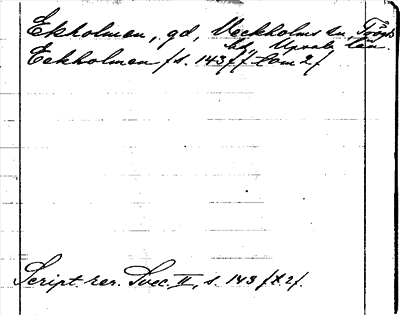 Ekholmen, gd, Veckholms sn, Trögds
hd, Upsala län.
Eckholmen /s. 143 /t. om 2/
Script. rer. Svec. II, s. 143 /t. 2/.